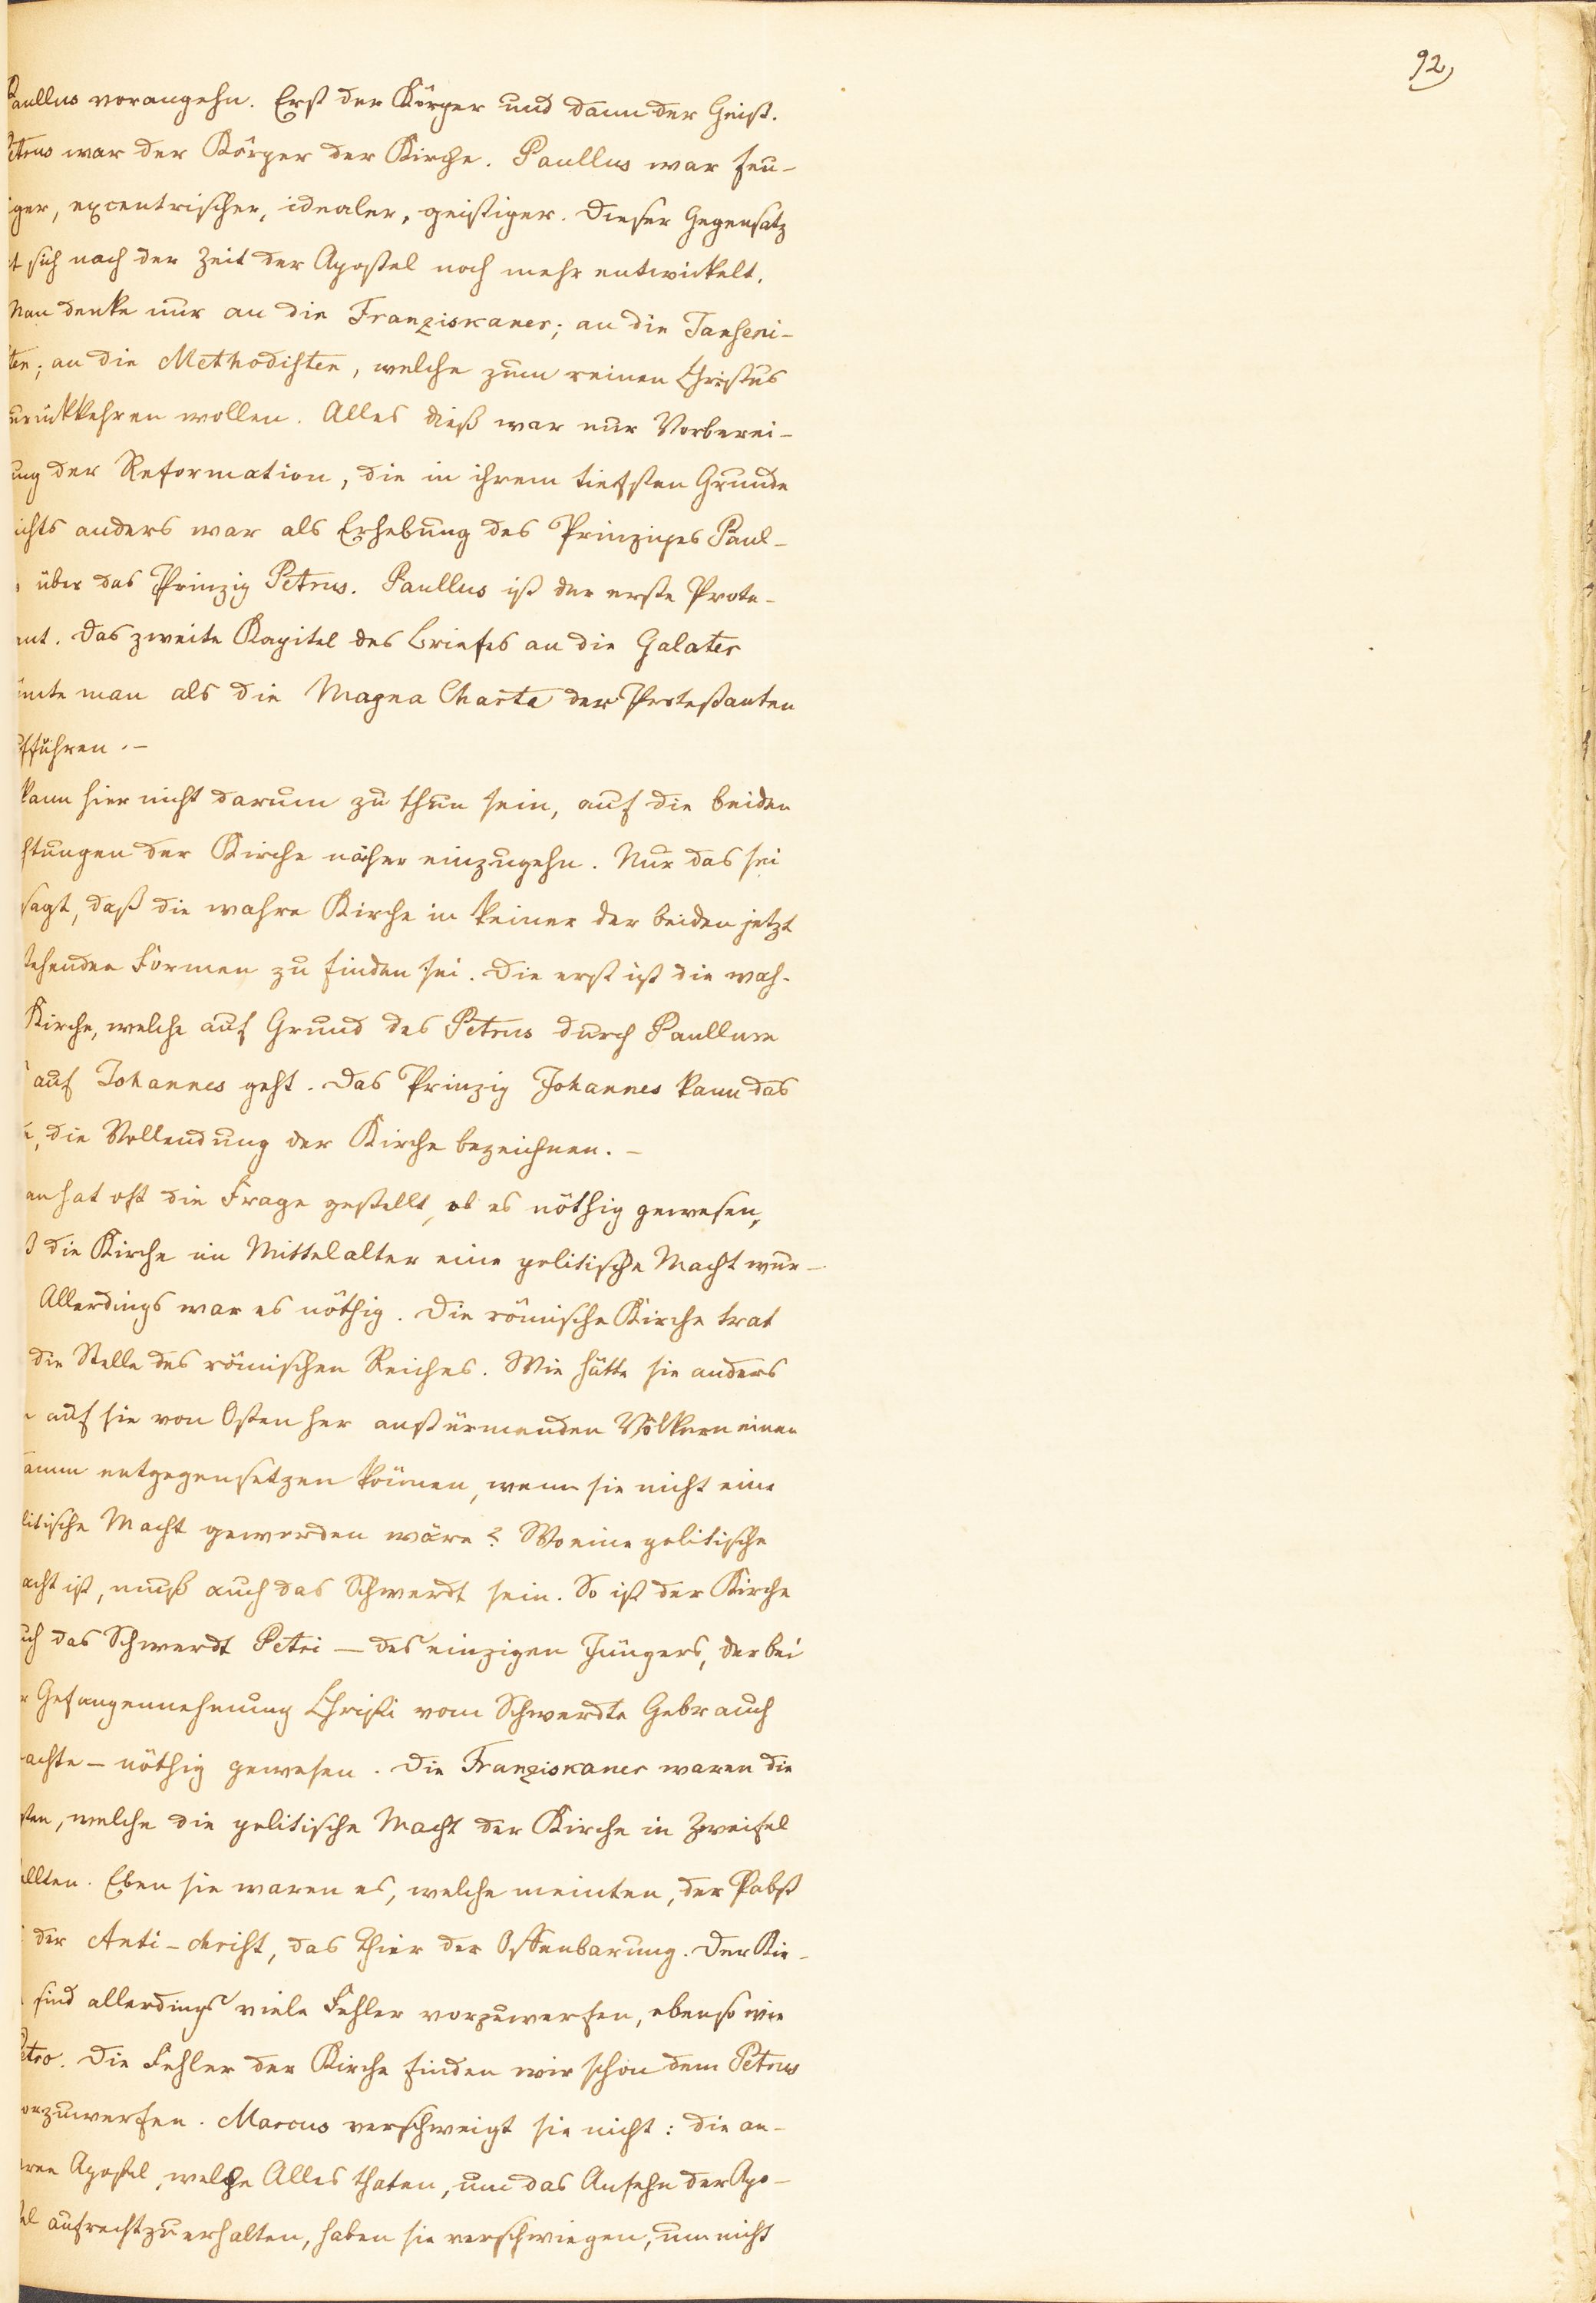 92,
Paullus vorangehn. Erst der Körper und dann der Geist.
Petrus war der Körper der Kirche. Paullus war feu-
iger, excentrischer, idealer, geistiger. Dieser Gegensatz
t sich nach der Zeit der Apostel noch mehr entwickelt.
Man denke nur an die Franziskaner; an die Janseni-
ten; an die Methodisten, welche zum reinen Christus
urückkehren wollen. Alles dieß war nur Vorberei-
ung der Reformation, die in ihrem tiefsten Grunde
ichts anders war als Erhebung des Prinzipes Paul-
über das Prinzip Petrus. Paullus ist der erste Prote-
ant. Das zweite Kapitel des Briefes an die Galater
önnte man als die Magna Charta der Protestanten
ufführen. –
kann hier nicht darum zu thun sein, auf die beiden
htungen der Kirche näher einzugehn. Nur das sei
sagt, daß die wahre Kirche in keiner der beiden jetzt
tehenden Formen zu finden sei. Die erst ist die wah-
Kirche, welche auf Grund des Petrus durch Paullum
auf Johannes geht. Das Prinzip Johannes kann das
, die Vollendung der Kirche bezeichnen. –
an hat oft die Frage gestellt, ob es nöthig gewesen,
ß die Kirche im Mittelalter eine politische Macht wur-
Allerdings war es nöthig. Die römische Kirche trat
die Stelle des römischen Reiches. Wie hätte sie anders
n auf sie von Osten her anstürmenden Völkern einen
amm entgegensetzen können, wenn sie nicht eine
litische Macht geworden wäre? Wo eine politische
acht ist, muß auch das Schwerdt sein. So ist der Kirche
uch das Schwerdt Petri – des einzigen Jüngers, der bei
r Gefangennehmung Christi vom Schwerdte Gebrauch
achte – nöthig gewesen. Die Franziskaner waren die
sten, welche die politische Macht der Kirche in Zweifel
ellten. Eben sie waren es, welche meinten, der Pabst
der Anti-christ, das Thier der Offenbarung. Der Kir-
sind allerdings viele Fehler vorzuwerfen, ebenso wie
etro. Die Fehler der Kirche finden wir schon dem Petrus
orzuwerfen. Marcus verschweigt sie nicht: die an-
eren Apostel, welche Alles thaten, um das Ansehn der Apo-
tel aufrecht zu erhalten, haben sie verschwiegen, um nicht